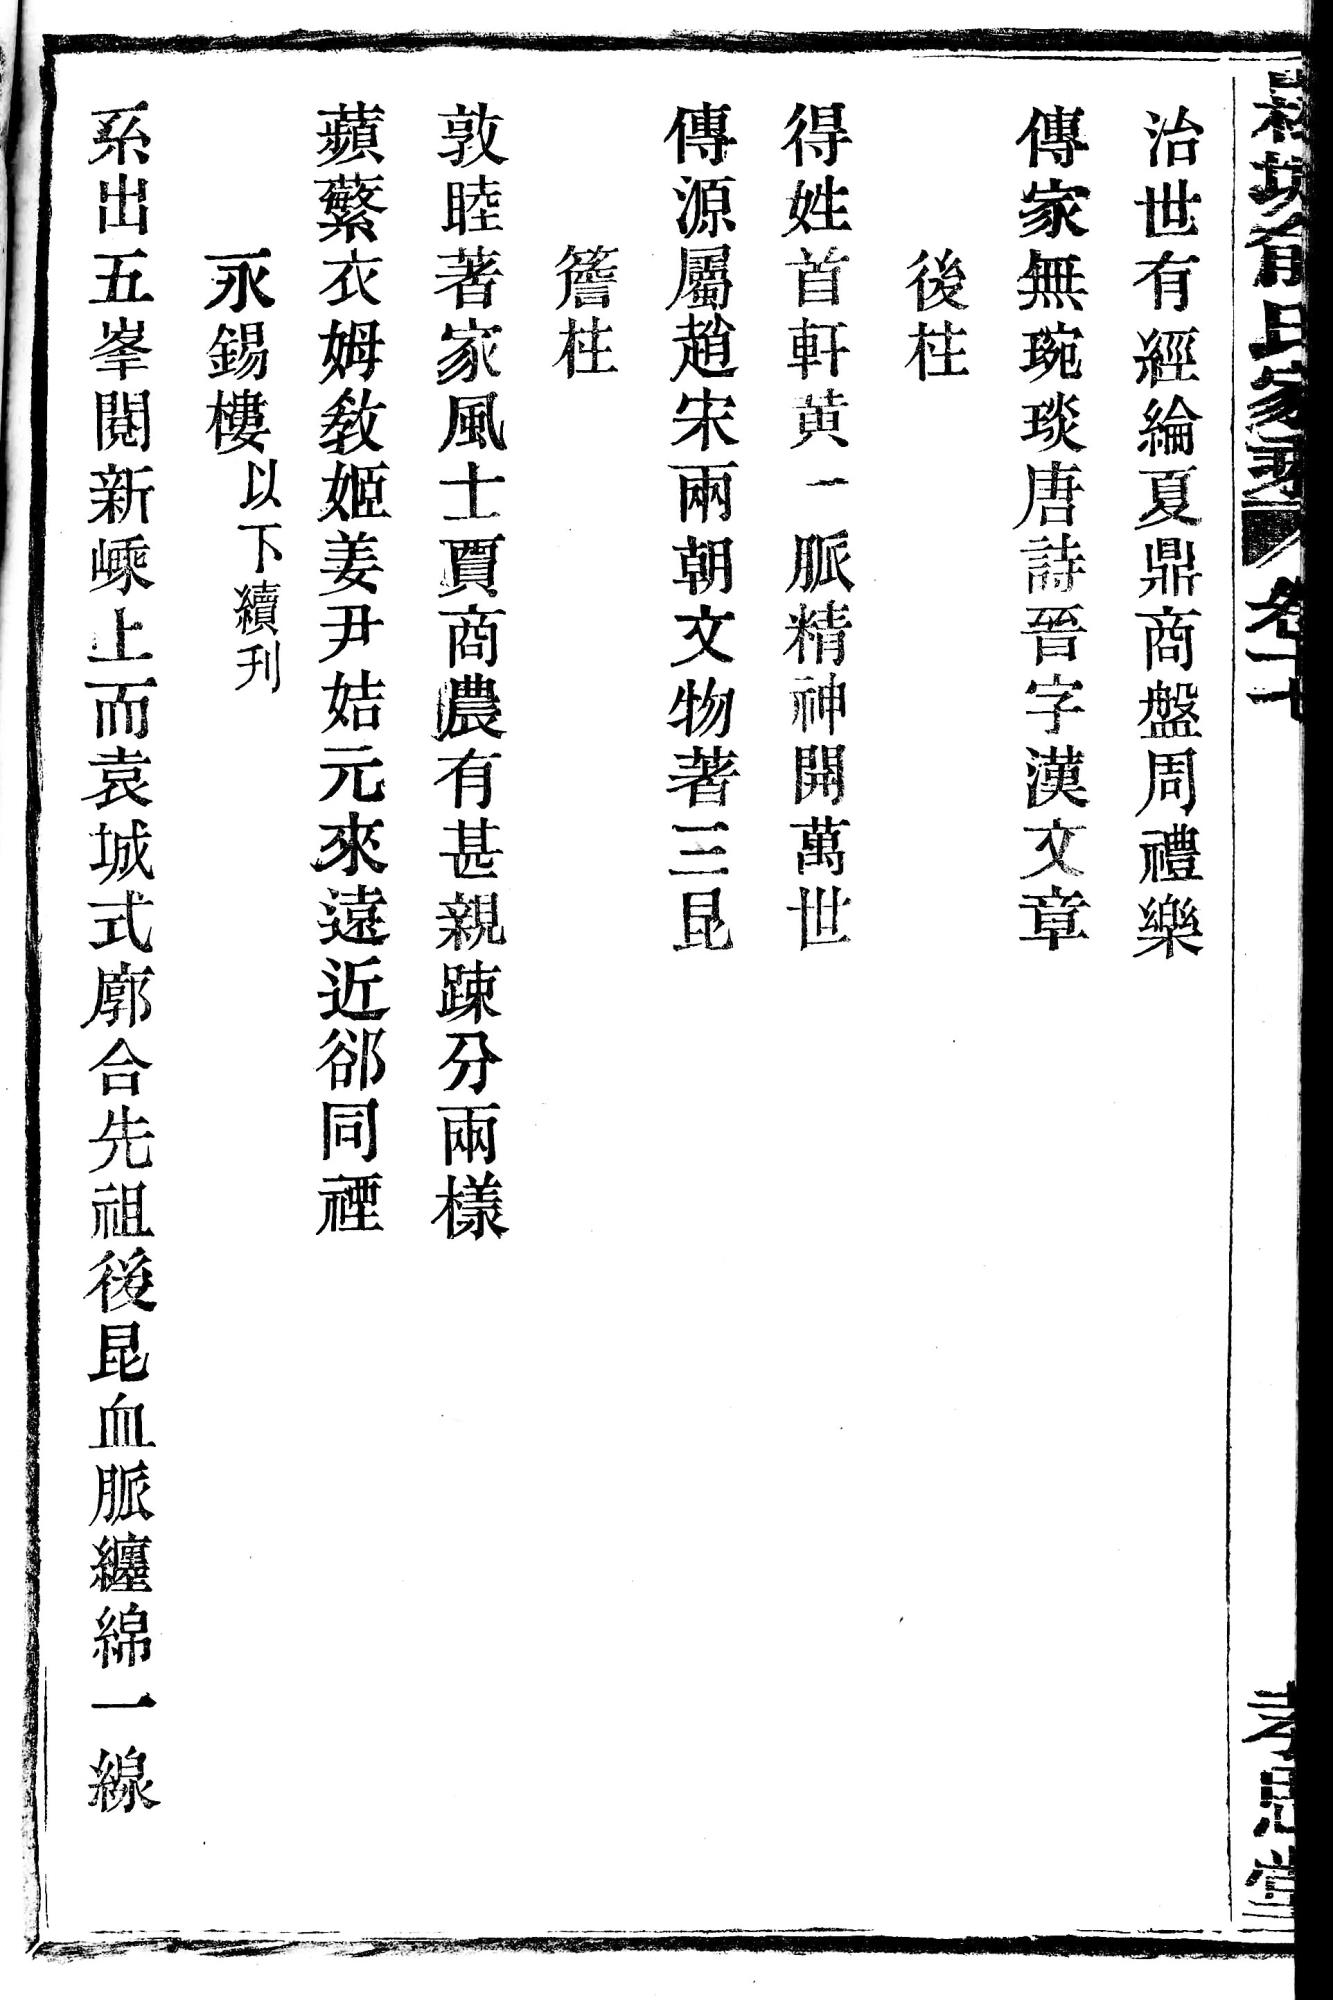 俞氏家乘 卷十七 孝思堂
治世有經綸夏鼎商盤周禮樂
傳家無琬琰唐詩晉字漢文章
後柱
得姓首軒黃一脈精神開萬世
傳源屬趙宋兩朝文物著三昆
簷柱
敦睦著家風士賈商農有甚親踈分兩樣
蘋蘩衣姆敎姬姜尹姞元來遠近郤同禋
永錫樓以下續刋
系出五峯閱新嵊上而袁城式廓合先祖後昆血脈纏綿一線